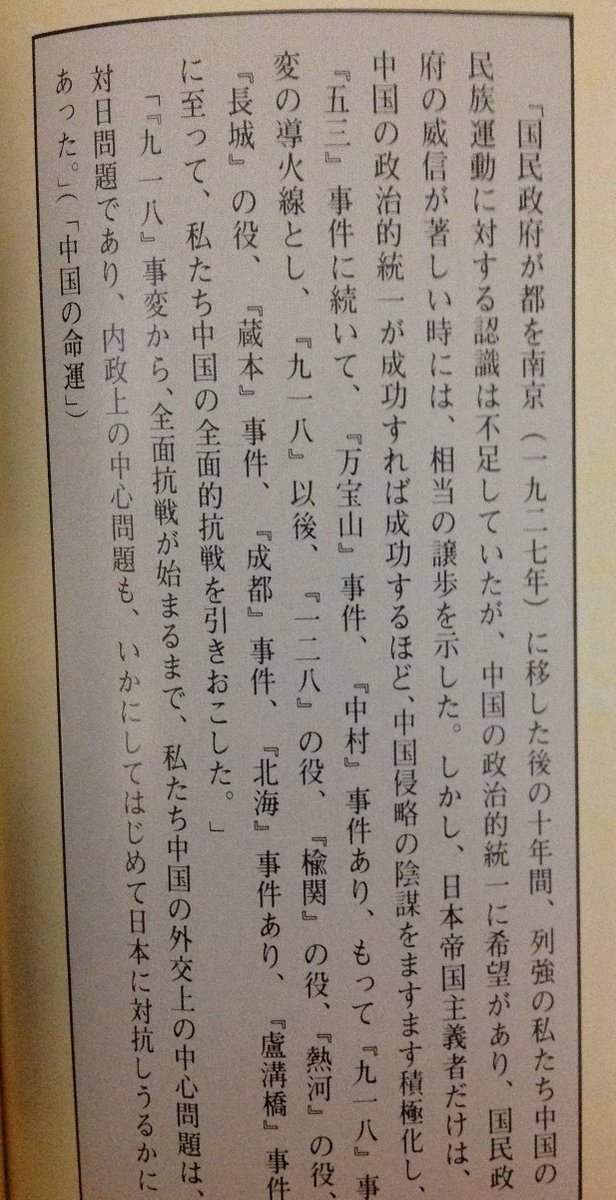 「国民政府が都を南京（一九二七年）に移した後の十年間、列強の私たち中国の
民族運動に対する認識は不足していたが、中国の政治的統一に希望があり、国民政
府の威信が著しい時には、相当の譲歩を示した。しかし、日本帝国主義者だけは、
中国の政治的統一が成功すれば成功するほど、中国侵略の陰謀をますます積極化し、
『五三』事件に続いて、『万宝山』事件、『中村』事件あり、もって『九一八』事
変の導火線とし、『九一八』以後、『一二八』の役、『楡関』の役、『熱河』の役、
『長城』の役、『蔵本』事件、『成都』事件、『北海』事件あり、『盧溝橋』事件
に至って、私たち中国の全面的抗戦を引きおこした。」
「『九一八』事変から、全面抗戦が始まるまで、私たち中国の外交上の中心問題は、
対日問題であり、内政上の中心問題も、いかにしてはじめて日本に対抗しうるかに
あった。」（「中国の命運」）